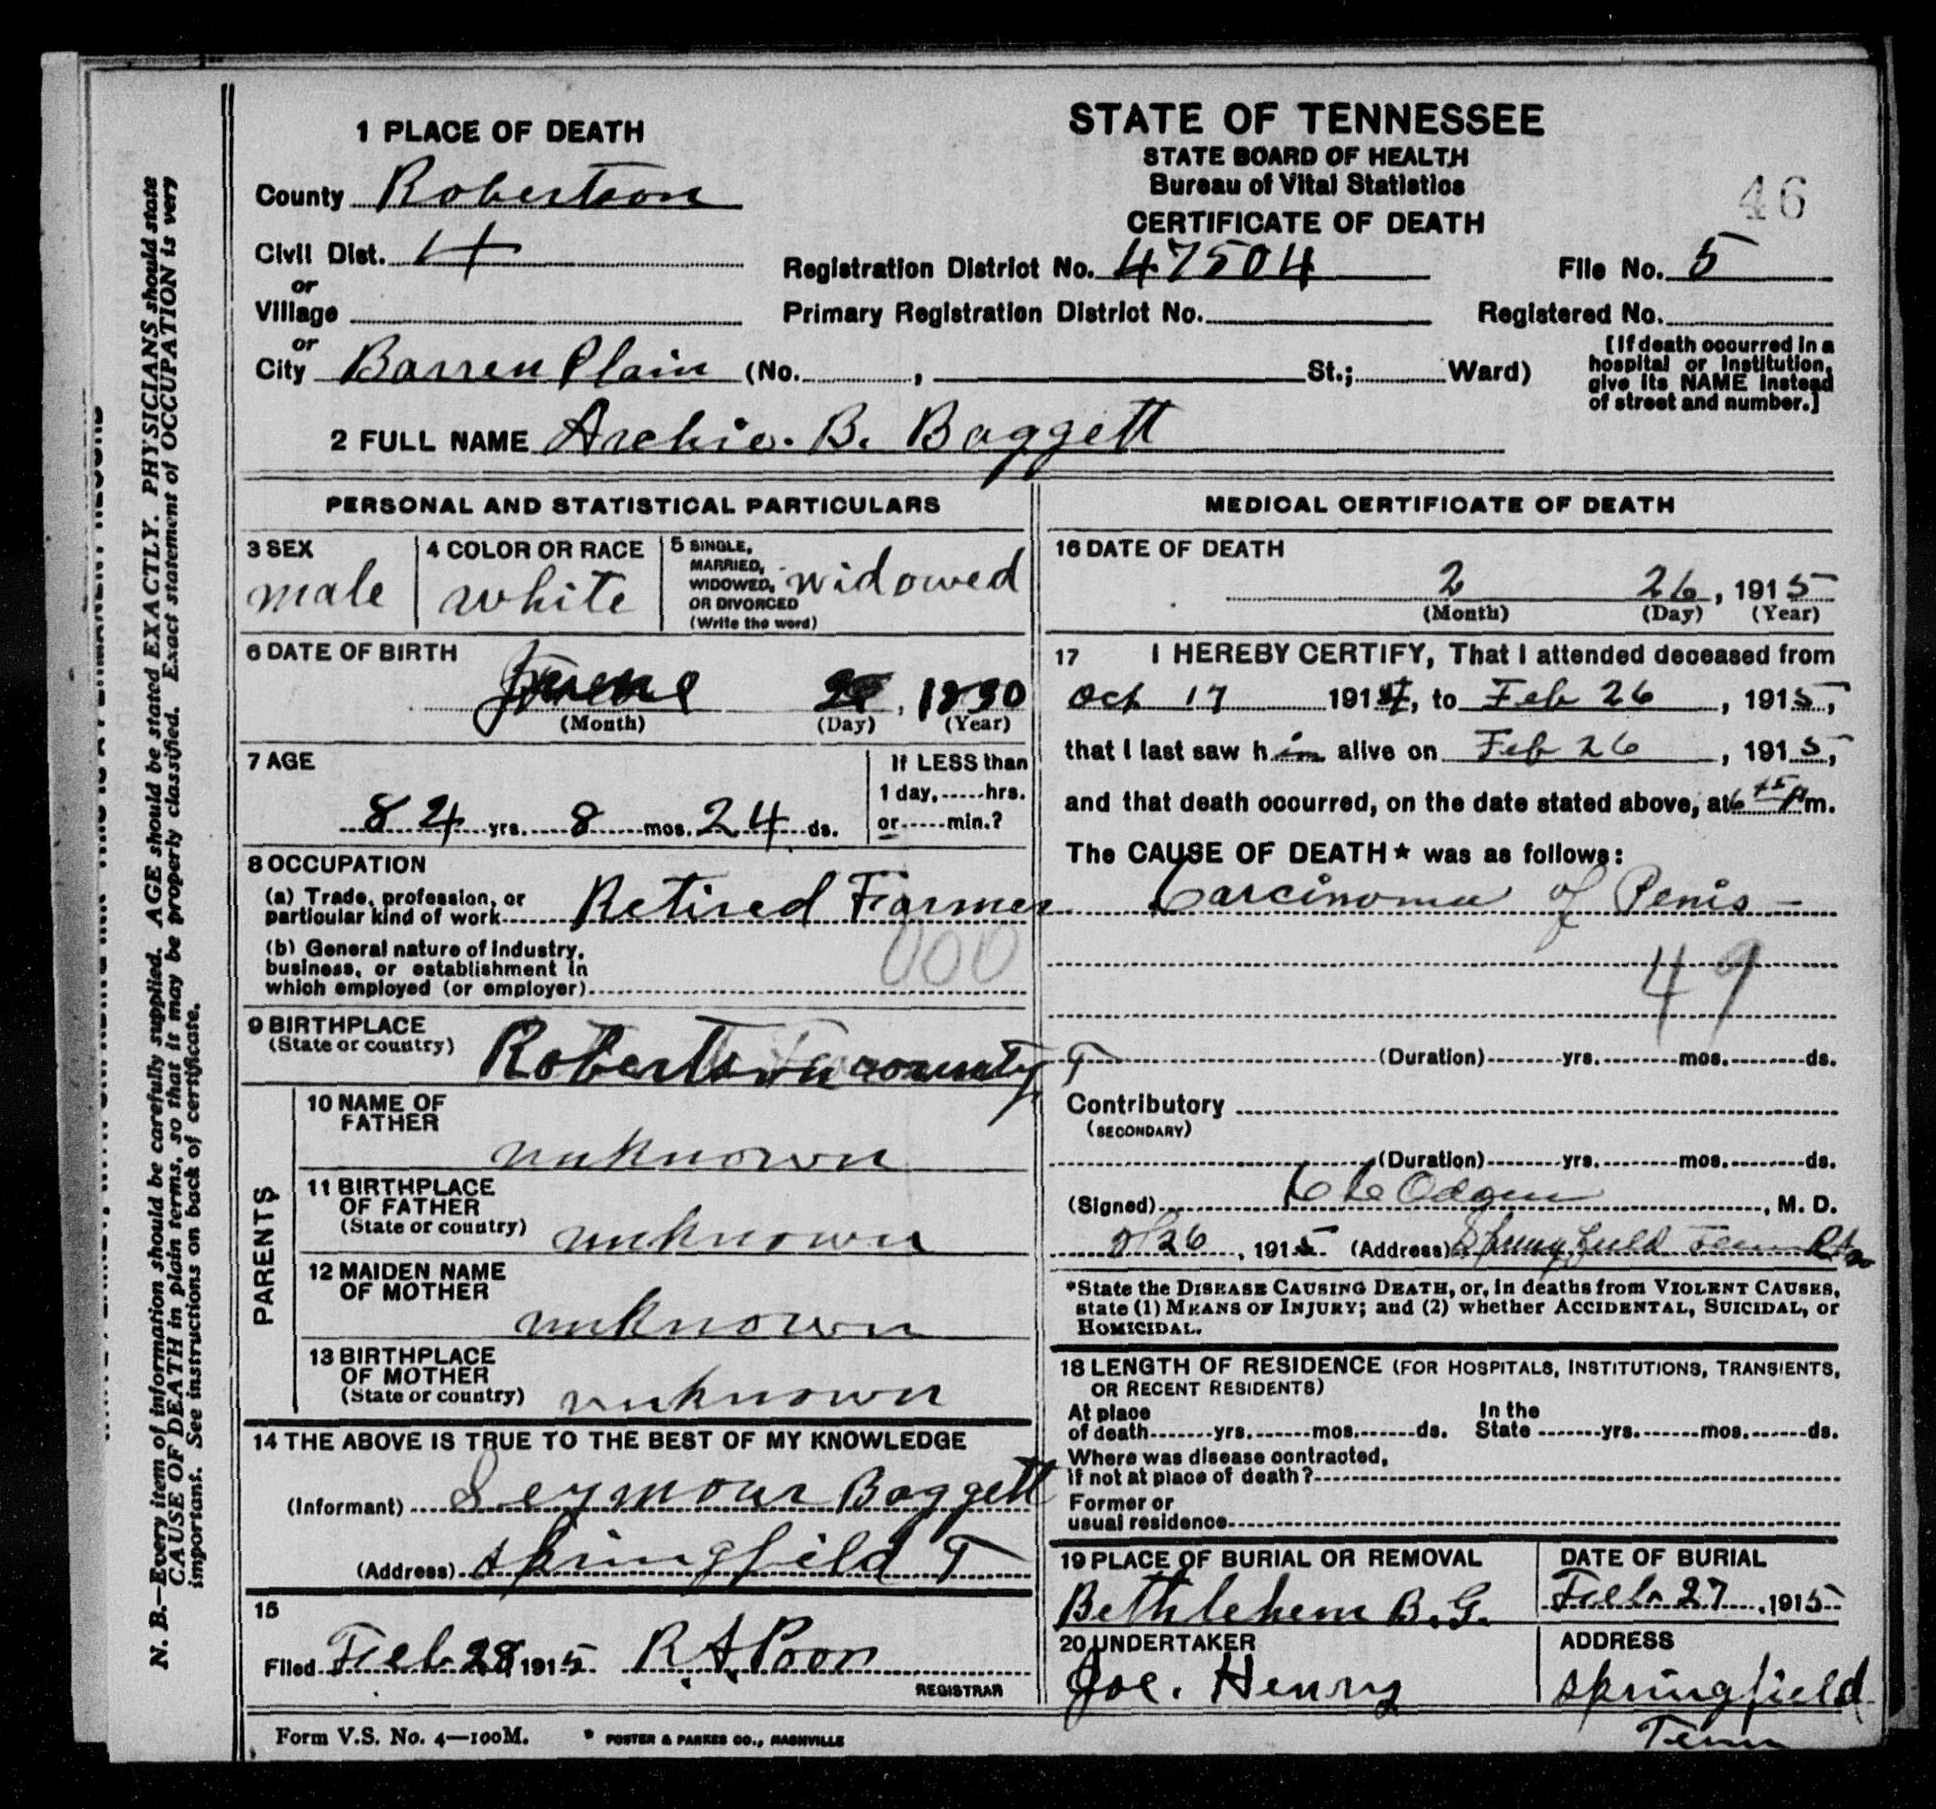 1 PLACE OF DEATH
County Robertson
Civil Dist. 4
or
Village
or
City Barren Plain (No. , St.; Ward)
STATE OF TENNESSEE
STATE BOARD OF HEALTH
Bureau of Vital Statistics
CERTIFICATE OF DEATH
46
Registration District No. 47504
File No. 5
Primary Registration District No.
Registered No.
[If death occurred in a
hospital or Institution,
give its NAME instead
of street and number.]
2 FULL NAME Archie. B. Baggett
PERSONAL AND STATISTICAL PARTICULARS
3 SEX
male
4 COLOR OR RACE
white
5 SINGLE,
MARRIED,
WIDOWED,
OR DIVORCED
(Write the word)
widowed
6 DATE OF BIRTH
, 1830
(Month) (Day) (Year)
7 AGE
84 yrs. 8 mos. 24 ds.
If LESS than
1 day, hrs.
or min.?
8 OCCUPATION
(a) Trade, profession, or
particular kind of work Retired Farmer
(b) General nature of Industry,
business, or establishment in
which employed (or employer)
000
9 BIRTHPLACE
(State or country)
Robertson county T
PARENTS
10 NAME OF
FATHER
unknown
11 BIRTHPLACE
OF FATHER
(State or country)
unknown
12 MAIDEN NAME
OF MOTHER
unknown
13 BIRTHPLACE
OF MOTHER
(State or country)
unknown
14 THE ABOVE IS TRUE TO THE BEST OF MY KNOWLEDGE
(Informant) Seymour Baggett
(Address) Springfield T
15
Filed Feb 28, 1915 R. A. Poor
REGISTRAR
MEDICAL CERTIFICATE OF DEATH
16 DATE OF DEATH
2 26, 1915
(Month) (Day) (Year)
17 I HEREBY CERTIFY, That I attended deceased from
Oct 17 1914, to Feb 26, 1915,
that I last saw him alive on Feb 26, 1915,
and that death occurred, on the date stated above, at 6 m.
The CAUSE OF DEATH* was as follows:
Carcinoma of Penis -
49
(Duration) yrs. mos. ds.
Contributory
(SECONDARY)
(Duration) yrs. mos. ds.
(Signed) Odgen, M. D.
2/26, 1915 (Address) Springfield Tenn
*State the DISEASE CAUSING DEATH, or, in deaths from VIOLENT CAUSES,
state (1) MEANS OF INJURY; and (2) whether ACCIDENTAL, SUICIDAL, or
HOMICIDAL.
18 LENGTH OF RESIDENCE (FOR HOSPITALS, INSTITUTIONS, TRANSIENTS,
OR RECENT RESIDENTS)
At place
of death yrs. mos. ds.
In the
State yrs. mos. ds.
Where was disease contracted,
if not at place of death?
Former or
usual residence
19 PLACE OF BURIAL OR REMOVAL
Bethlehem B. G.
DATE OF BURIAL
Feb 27, 1915
20 UNDERTAKER
Joe. Henry
ADDRESS
Springfield
Tenn
Form V.S. No. 4—100M.
FOSTER & PARKES CO., NASHVILLE
N. B.—Every item of information should be carefully supplied. AGE should be stated EXACTLY. PHYSICIANS should state
CAUSE OF DEATH in plain terms, so that it may be properly classified. Exact statement of OCCUPATION is very
important. See instructions on back of certificate.